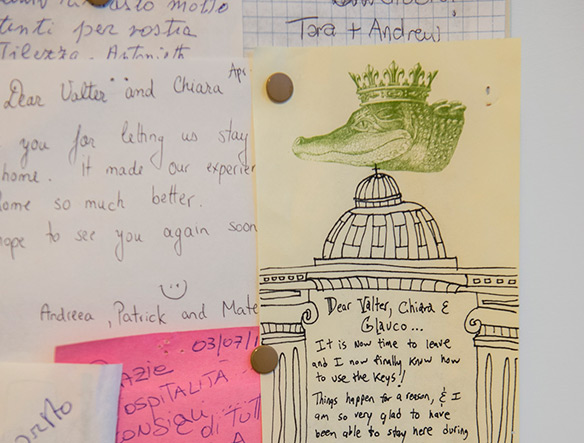 molto
tenti per vostra
Antonieth
Tara + Andrew!
Apr
Dear Valter and Chiara
you for letting us stay
home. It made our experien
ome so much better.
hope to see you again soon
Andreea, Patrick and Mate
03/07/1
razie
OSPITALITÀ
onsigli
di TUTT
A
Dear Valter, Chiara &
Glauco...
It is now time to leave
and I now finally know how
to use the keys!!
Things happen for a reason, & I
am so very glad to have
been able to stay here during